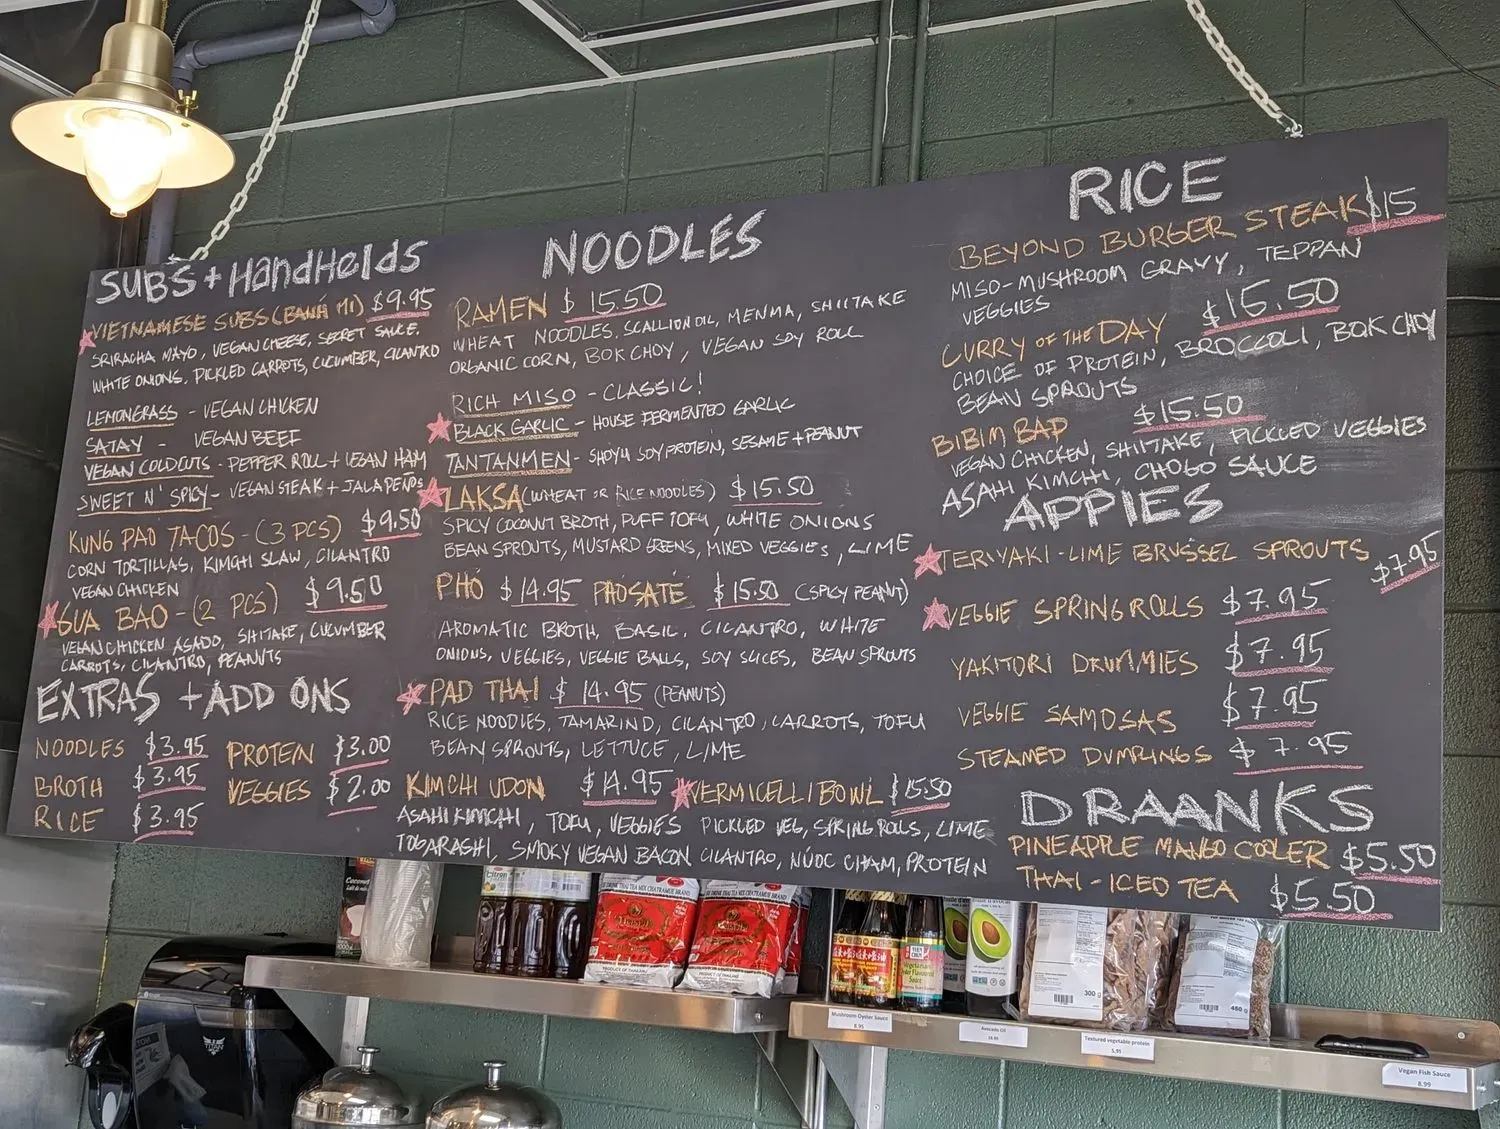 SUBS + HandHelds
VIETNAMESE SUBS (BANH MI) $9.95
SRIRACHA MAYO, VEGAN CHEESE, SECRET SAUCE,
WHITE ONIONS, PICKLED CARROTS, CUCUMBER, CILANTRO
LEMONGRASS - VEGAN CHICKEN
SATAY - VEGAN BEEF
VEGAN COLDCUTS - PEPPER ROLL + VEGAN HAM
SWEET N' SPICY - VEGAN STEAK + JALAPENOS
KUNG PAO TACOS - (3 PCS) $9.50
CORN TORTILLAS, KIMCHI SLAW, CILANTRO
VEGAN CHICKEN
GUA BAO - (2 PCS) $9.50
VEGAN CHICKEN ASADO, SHIITAKE, CUCUMBER
CARROTS, CILANTRO, PEANUTS
EXTRAS + ADD ONS
NOODLES $3.95 PROTEIN $3.00
BROTH $3.95 VEGGIES $2.00
RICE $3.95
NOODLES
RAMEN $15.50
WHEAT NOODLES, SCALLION OIL, MENMA, SHIITAKE
ORGANIC CORN, BOK CHOY, VEGAN SOY ROLL
RICH MISO - CLASSIC!
BLACK GARLIC - HOUSE FERMENTED GARLIC
TANTANMEN - SHOYU SOY PROTEIN, SESAME + PEANUT
LAKSA (WHEAT OR RICE NOODLES) $15.50
SPICY COCONUT BROTH, PUFF TOFU, WHITE ONIONS
BEAN SPROUTS, MUSTARD GREENS, MIXED VEGGIES, LIME
PHO $14.95 PHO SATE $15.50 (SPICY PEANUT)
AROMATIC BROTH, BASIL, CILANTRO, WHITE
ONIONS, VEGGIES, VEGGIE BALLS, SOY SLICES, BEAN SPROUTS
PAD THAI $14.95 (PEANUTS)
RICE NOODLES, TAMARIND, CILANTRO, CARROTS, TOFU
BEAN SPROUTS, LETTUCE, LIME
KIMCHI UDON $14.95
ASAHI KIMCHI, TOFU, VEGGIES
TOGARASHI, SMOKY VEGAN BACON
VERMICELLI BOWL $15.50
PICKLED VEG, SPRING ROLLS, LIME
CILANTRO, NUOC CHAM, PROTEIN
RICE
BEYOND BURGER STEAK $15
MISO-MUSHROOM GRAVY, TEPPAN
VEGGIES
CURRY OF THE DAY $15.50
CHOICE OF PROTEIN, BROCCOLI, BOK CHOY
BEAN SPROUTS
BIBIM BAP $15.50
VEGAN CHICKEN, SHIITAKE, PICKLED VEGGIES
ASAHI KIMCHI, CHOGO SAUCE
APPIES
TERIYAKI-LIME BRUSSEL SPROUTS $7.95
VEGGIE SPRING ROLLS $7.95
YAKITORI DRUMMIES $7.95
VEGGIE SAMOSAS $7.95
STEAMED DUMPLINGS $7.95
DRAANKS
PINEAPPLE MANGO COOLER $5.50
THAI-ICED TEA $5.50
PRODUCT OF THAILAND
PRODUCT OF THAILAND
Mushroom Oyster Sauce
8.95
Avocado Oil
Textured vegetable protein
5.95
Vegan Fish Sauce
8.99
300 g
TITAN